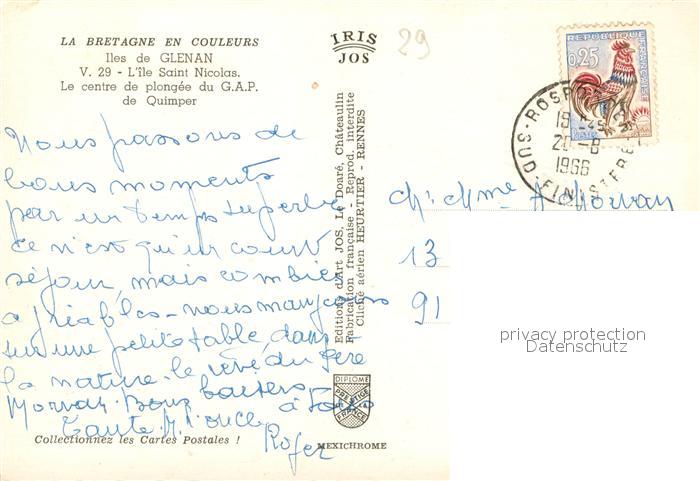 LA BRETAGNE EN COULEURS
Iles de GLENAN
V. 29 - L'Ile Saint Nicolas.
Le centre de plongée du G.A.P.
de Quimper
IRIS
JOS
29
REPUBLIQUE FRANÇAISE
0,25
19 -45
20 -8
1966
FINISTERE
Nous passons de
bons moments
par un temps superbe
ce n'est qu'un court
séjour, mais combien
agréables - nous mangeons
sur une petite table, dans
la nature. le rêve du Père
Morvan. Bons baisers
à Tous
Tante M. oncle
Roger
Collectionnez les Cartes Postales !
Editions d'Art JOS, Le Doaré, Châteaulin
Fabrication française - Reprod. interdite
Cliché aérien HEURTIER - RENNES
DIPLOME
PRESTIGE
FRANCE
MEXICHROME
Mr & Mme A Morvan
13
91
privacy protection
Datenschutz